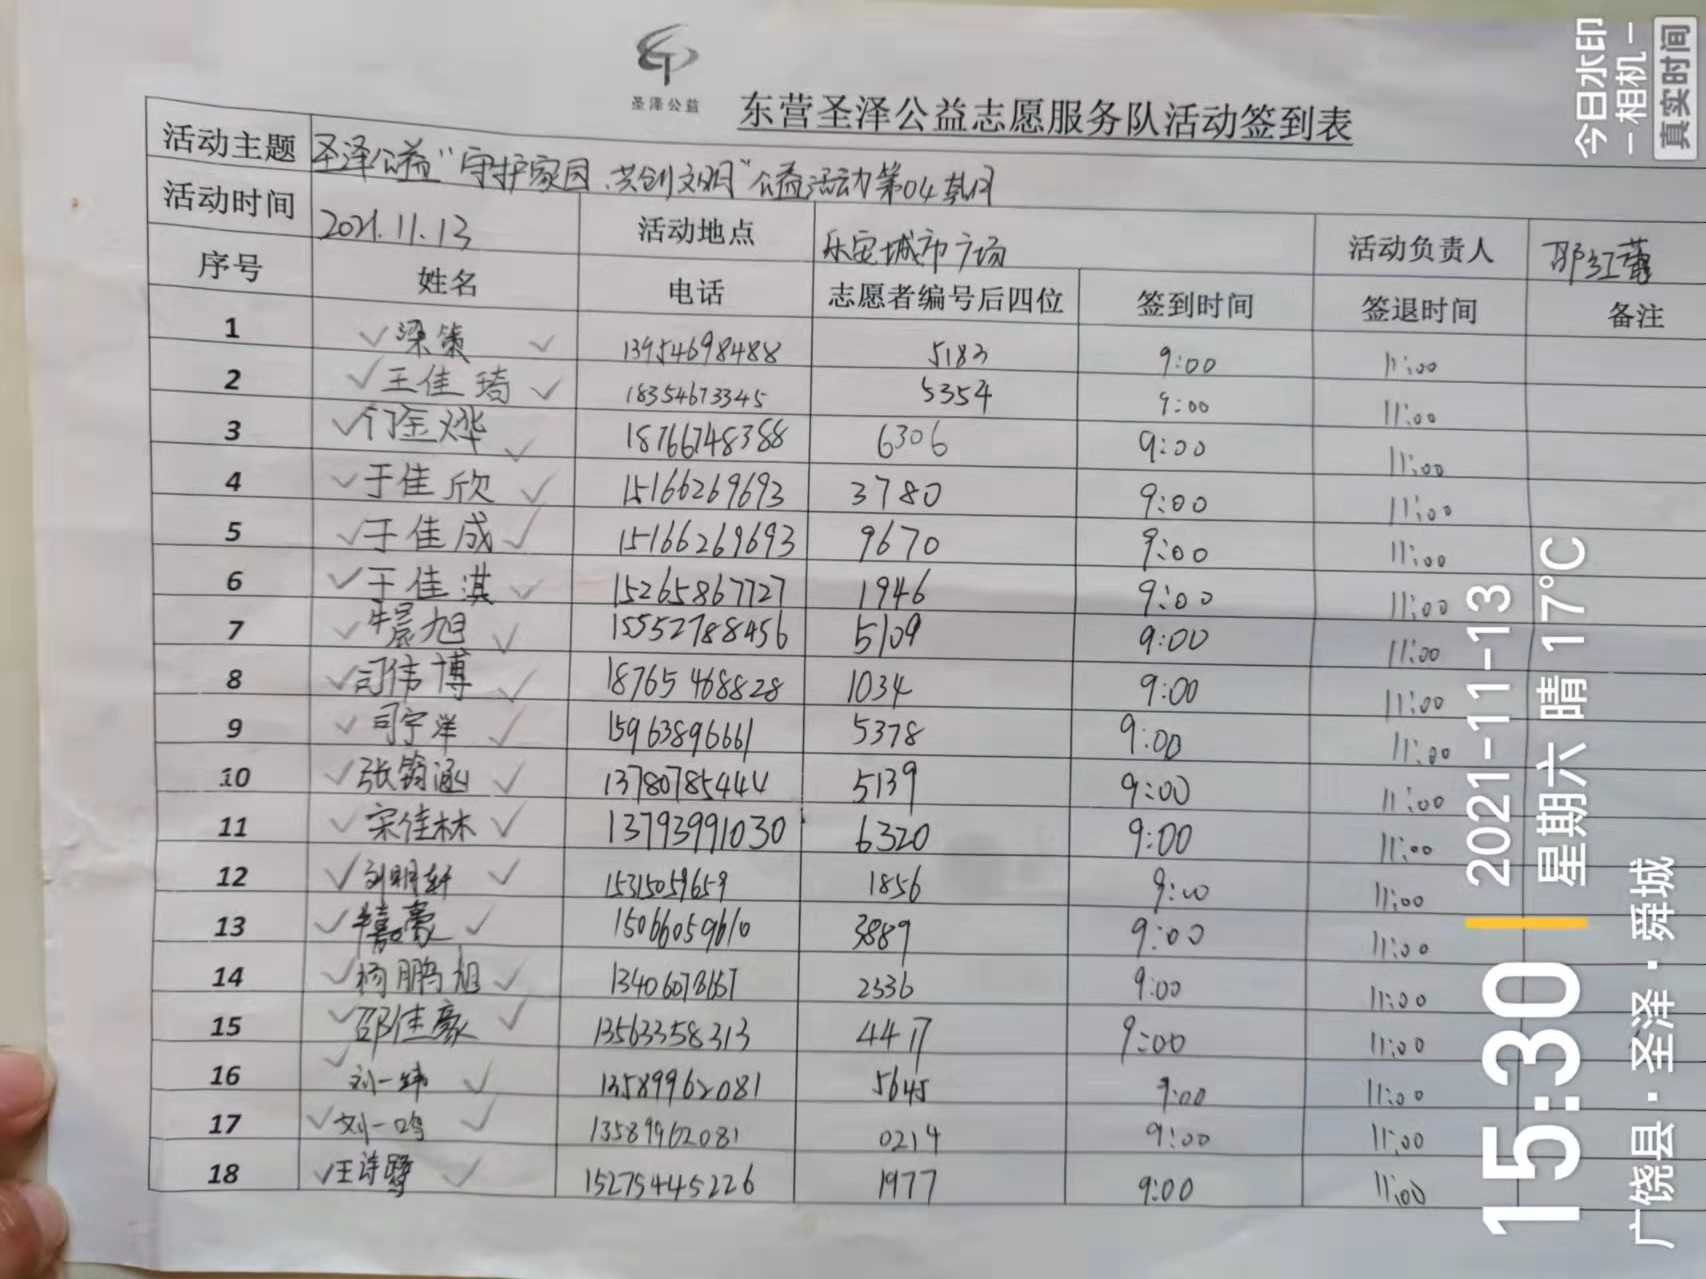 圣泽公益
东营圣泽公益志愿服务队活动签到表
活动主题 圣泽公益“守护家园、共创文明”公益活动第04期
活动时间 2021.11.13 活动地点 乐安城市广场 活动负责人 邵红蕾
序号 姓名 电话 志愿者编号后四位 签到时间 签退时间 备注
1 ✓梁策✓ 13954698488 5183 9:00 11:00
2 ✓王佳琦✓ 18354673345 5354 9:00 11:00
3 ✓门金烨✓ 18766748388 6306 9:00 11:00
4 ✓于佳欣✓ 15166269693 3780 9:00 11:00
5 ✓于佳成✓ 15166269693 9670 9:00 11:00
6 ✓于佳淇✓ 15265867727 1946 9:00 11:00
7 ✓牛晨旭✓ 15552788456 5109 9:00 11:00
8 ✓司伟博✓ 18765468828 1034 9:00 11:00
9 ✓司宁洋✓ 15963896661 5378 9:00 11:00
10 ✓张钧涵✓ 13780785444 5139 9:00 11:00
11 ✓宋佳林✓ 13793991030 6320 9:00 11:00
12 ✓刘明轩✓ 15315059659 1856 9:00 11:00
13 ✓牛嘉豪✓ 15066059610 3889 9:00 11:00
14 ✓杨鹏旭✓ 2336 9:00 11:00
15 ✓邵佳豪✓ 13563358313 4417 9:00 11:00
16 ✓刘一纬✓ 13589962081 5645 9:00 11:00
17 ✓刘一鸣✓ 13589962081 0214 9:00 11:00
18 ✓王诗鹭✓ 15275445226 1977 9:00 11:00
今日水印
相机
真实时间
15:30
2021-11-13
星期六 晴 17°C
广饶县·圣泽·舜城